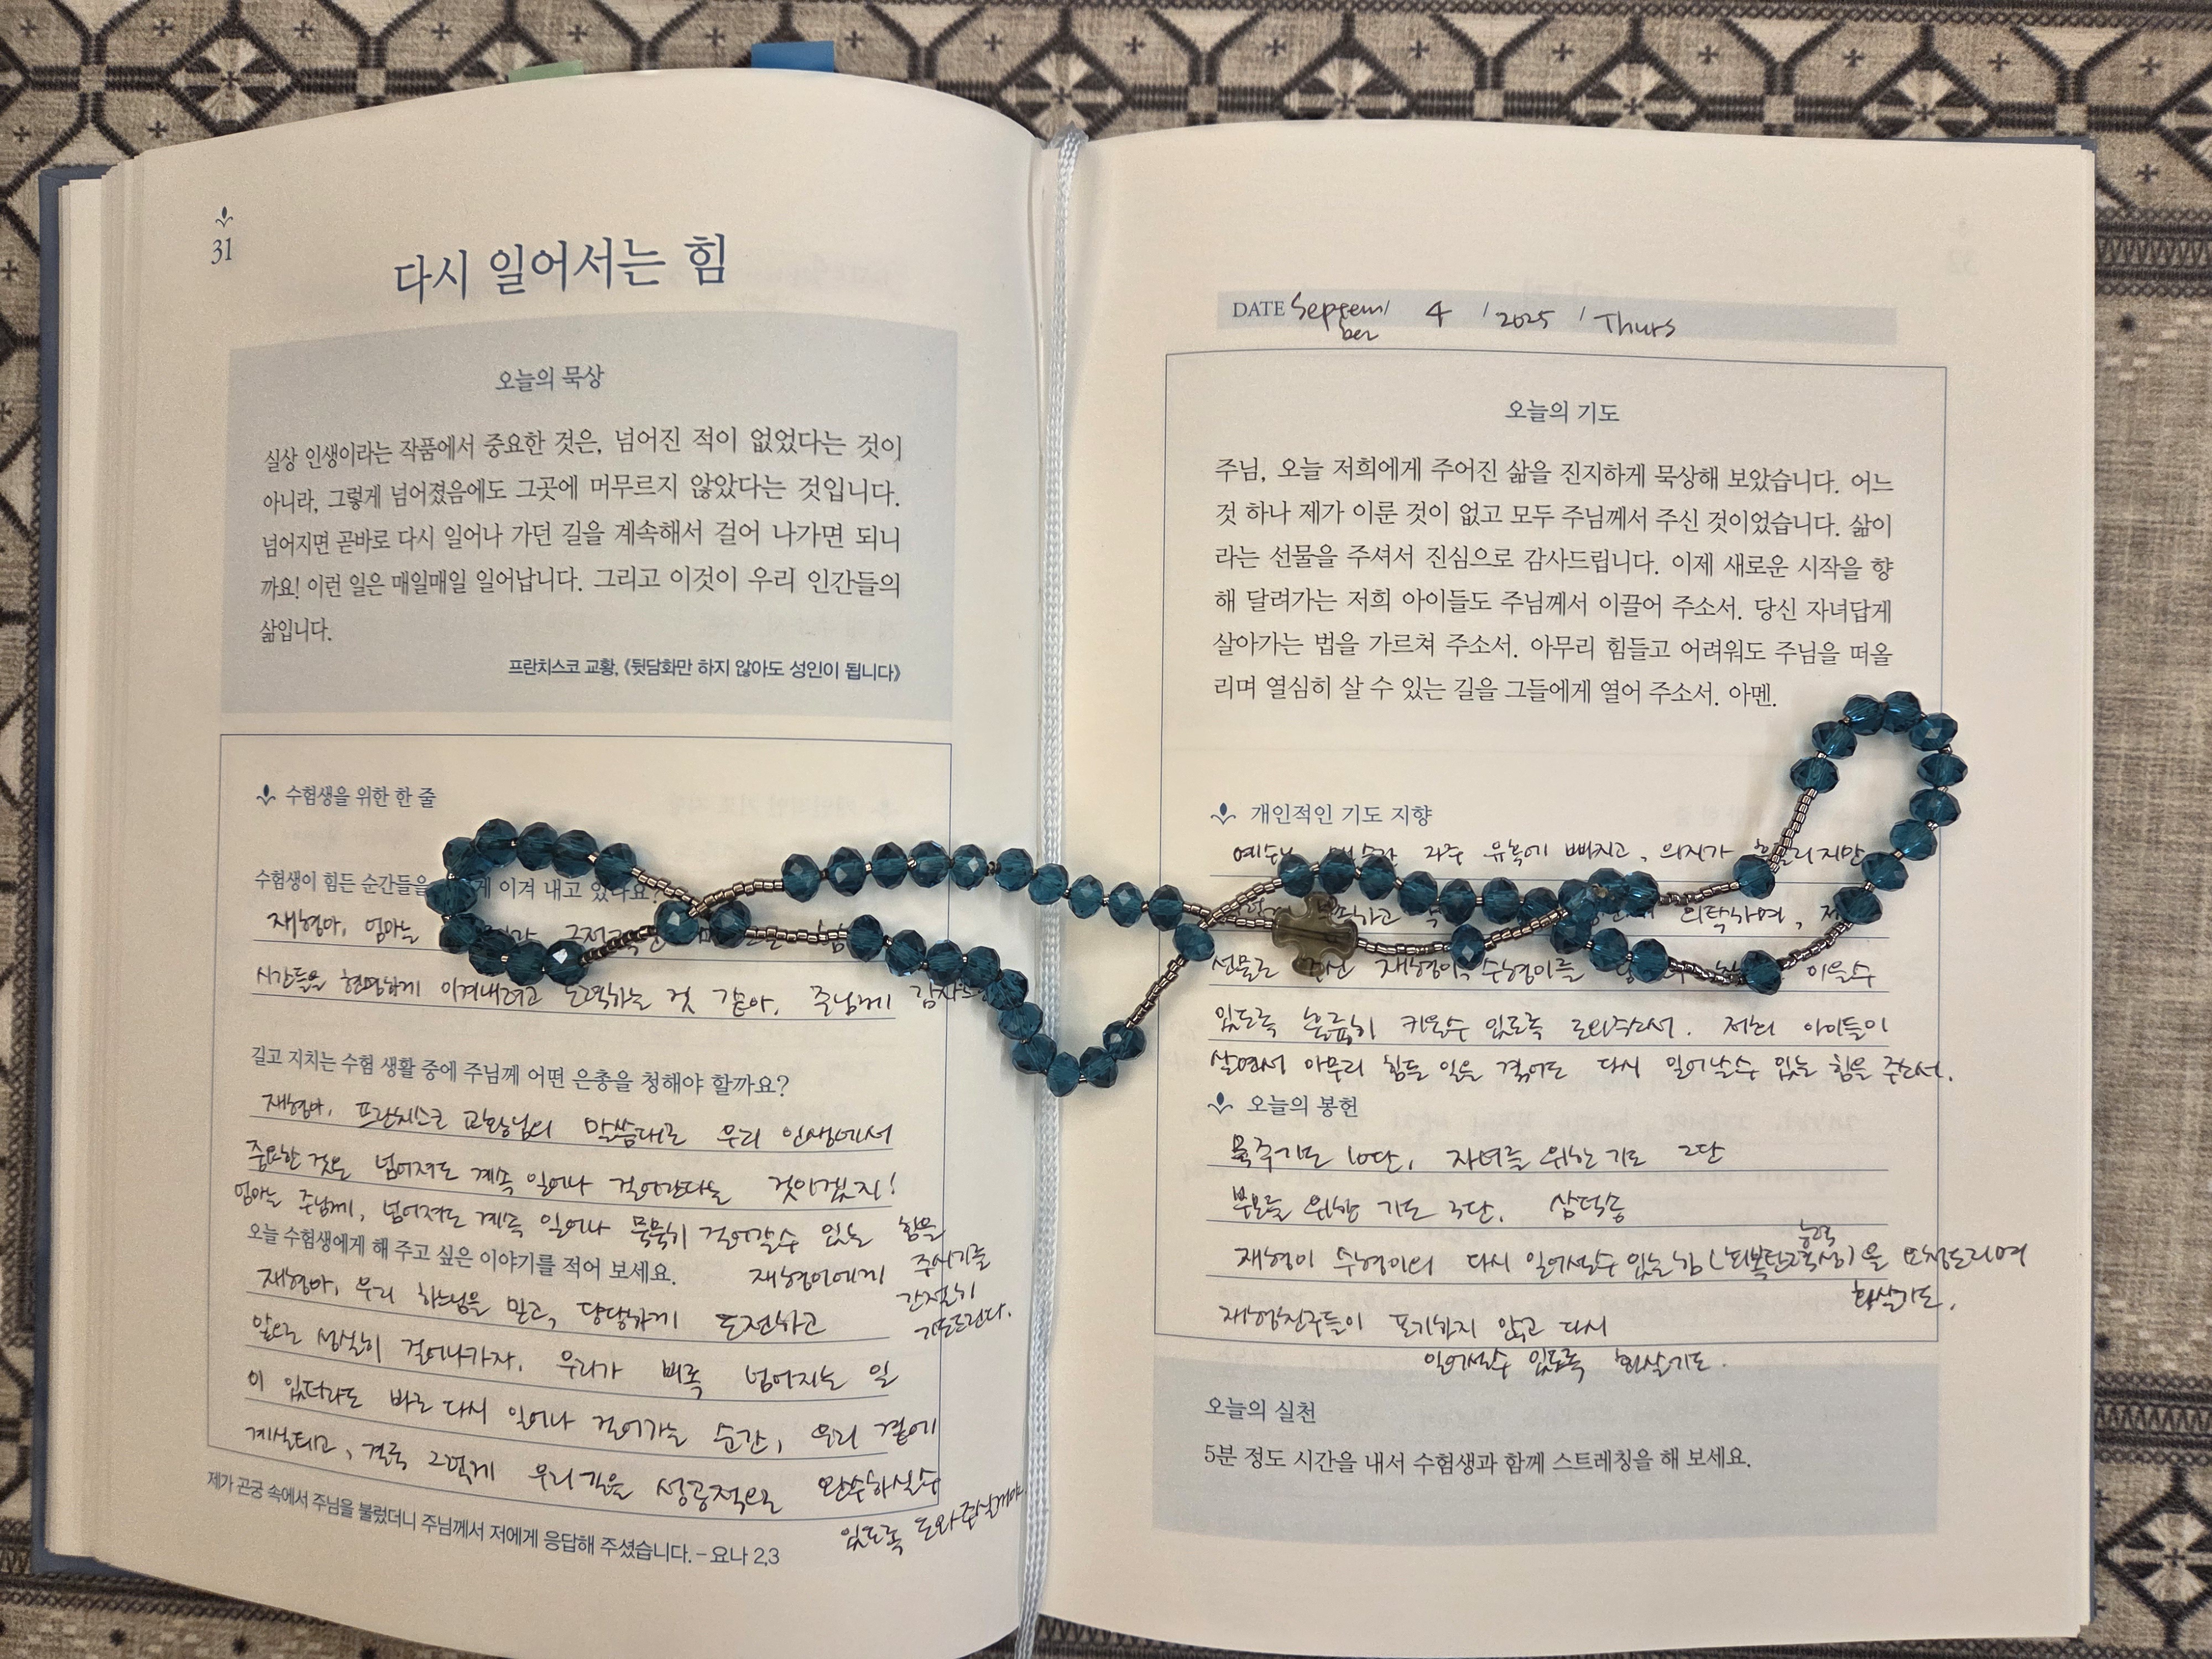 31
다시 일어서는 힘
오늘의 묵상
실상 인생이라는 작품에서 중요한 것은, 넘어진 적이 없었다는 것이
아니라, 그렇게 넘어졌음에도 그곳에 머무르지 않았다는 것입니다.
넘어지면 곧바로 다시 일어나 가던 길을 계속해서 걸어 나가면 되니
까요! 이런 일은 매일매일 일어납니다. 그리고 이것이 우리 인간들의
삶입니다.
프란치스코 교황, 《뒷담화만 하지 않아도 성인이 됩니다》
수험생을 위한 한 줄
수험생이 힘든 순간들을 이겨 내고 있나요?
재형아, 엄마는
시간들을 현명하게 이겨내려고 노력하는 것 같아. 주님께
길고 지치는 수험 생활 중에 주님께 어떤 은총을 청해야 할까요?
재형아, 프란치스코 교황님의 말씀대로 우리 인생에서
중요한 것은 넘어져도 계속 일어나 걸어간다는 것이겠지!
엄마는 주님께, 넘어져도 계속 일어나 묵묵히 걸어갈수 있는 힘을
재형이에게 주시기를
간절히
기도드린다.
오늘 수험생에게 해 주고 싶은 이야기를 적어 보세요.
재형아, 우리 하느님을 믿고, 당당하게 도전하고
앞으로 성실히 걸어나가자. 우리가 비록 넘어지는 일
이 있더라도 바로 다시 일어나 걸어가는 순간, 우리 곁에
계실테고, 결국 그렇게 우리 길을 성공적으로 완수하실수
있도록 도와주실꺼야
제가 곤궁 속에서 주님을 불렀더니 주님께서 저에게 응답해 주셨습니다. - 요나 2,3
DATE Septem/ 4 / 2025 / Thurs
ber
오늘의 기도
주님, 오늘 저희에게 주어진 삶을 진지하게 묵상해 보았습니다. 어느
것 하나 제가 이룬 것이 없고 모두 주님께서 주신 것이었습니다. 삶이
라는 선물을 주셔서 진심으로 감사드립니다. 이제 새로운 시작을 향
해 달려가는 저희 아이들도 주님께서 이끌어 주소서. 당신 자녀답게
살아가는 법을 가르쳐 주소서. 아무리 힘들고 어려워도 주님을 떠올
리며 열심히 살 수 있는 길을 그들에게 열어 주소서. 아멘.
개인적인 기도 지향
자주 유혹에 빠지고, 의지가 흔들리지만
의탁하며,
선물로 주신 재형이, 수형이를 이을수
있도록 훌륭히 키울수 있도록 도와주소서. 저희 아이들이
살면서 아무리 힘든 일을 겪어도 다시 일어날수 있는 힘을 주소서.
오늘의 봉헌
묵주기도 10단, 자녀를 위한 기도 2단
부모를 위한 기도 3단. 삼덕송
재형이 수형이의 다시 일어설수 있는 힘 을 요청드리며
능력
화살기도.
재형친구들이 포기하지 않고 다시
일어설수 있도록 화살기도.
오늘의 실천
5분 정도 시간을 내서 수험생과 함께 스트레칭을 해 보세요.